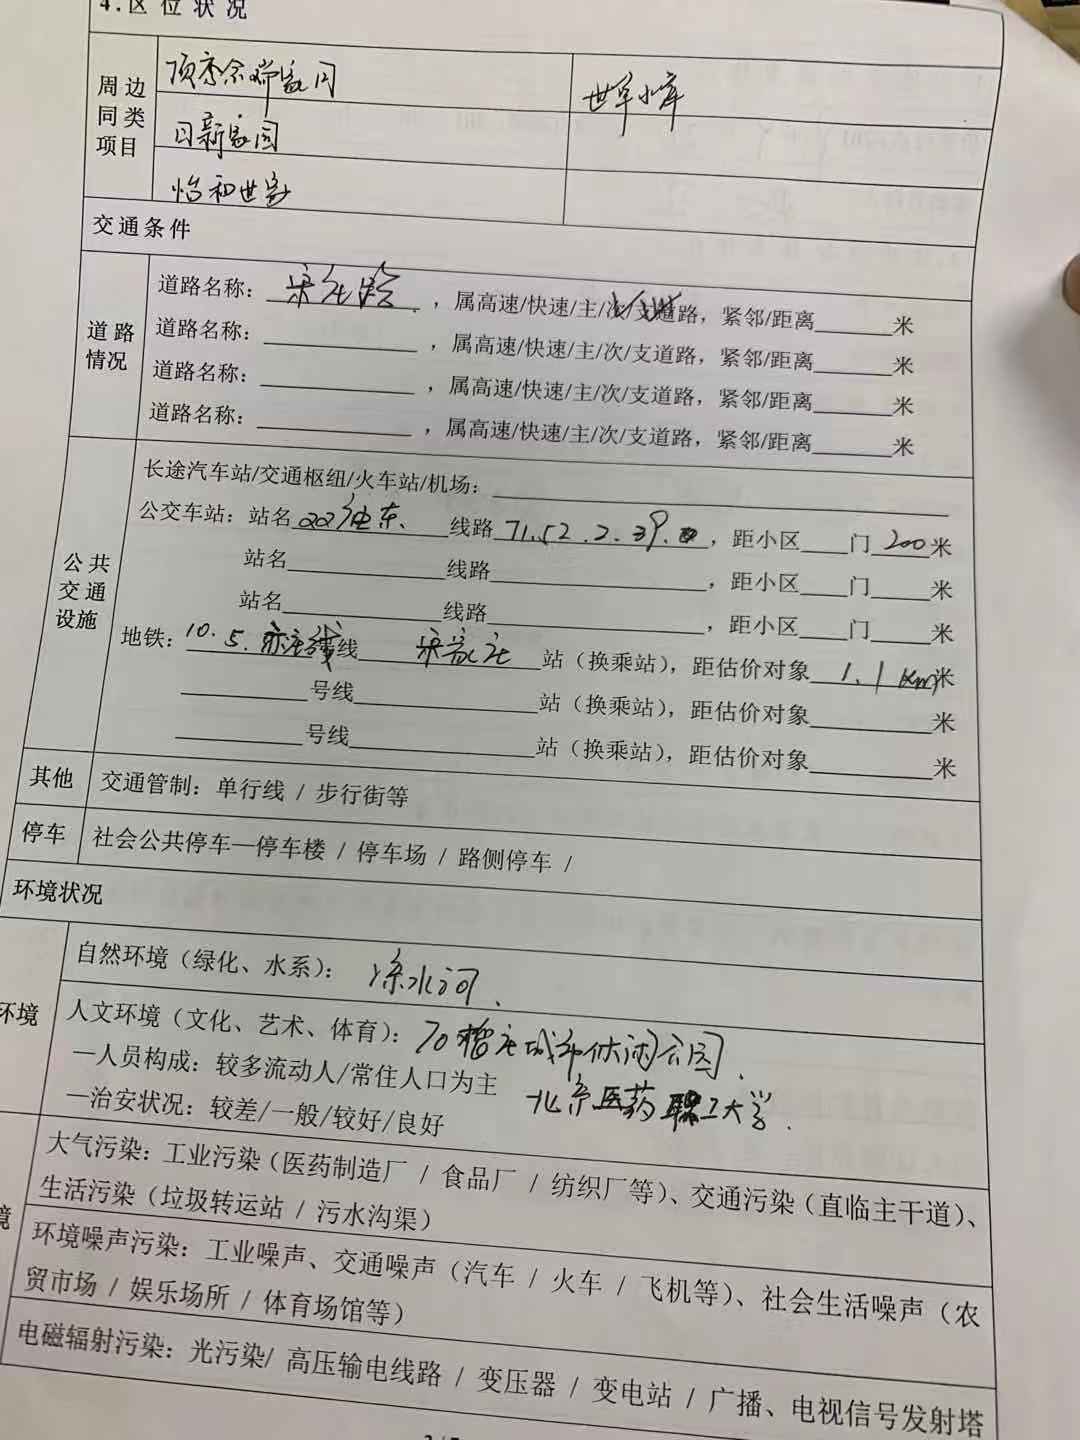 4.区位状况
周边同类项目
顶秀金瑞家园
世华水岸
日新家园
怡和世家
交通条件
道路情况
道路名称：宋庄路，属高速/快速/主/次/支道路，紧邻/距离______米
道路名称：______，属高速/快速/主/次/支道路，紧邻/距离______米
道路名称：______，属高速/快速/主/次/支道路，紧邻/距离______米
道路名称：______，属高速/快速/主/次/支道路，紧邻/距离______米
公共交通设施
长途汽车站/交通枢纽/火车站/机场：______
公交车站：站名 线路71.52.2.39.，距小区____门200米
站名______线路______，距小区____门____米
站名______线路______，距小区____门____米
地铁：10.5.亦庄线线宋家庄站（换乘站），距估价对象1.1km米
______号线______站（换乘站），距估价对象______米
______号线______站（换乘站），距估价对象______米
其他
交通管制：单行线 / 步行街等
停车
社会公共停车—停车楼 / 停车场 / 路侧停车 /
环境状况
环境
自然环境（绿化、水系）：凉水河.
人文环境（文化、艺术、体育）：城市休闲公园.
—人员构成：较多流动人/常住人口为主
北京医药职工大学.
—治安状况：较差/一般/较好/良好
境
大气污染：工业污染（医药制造厂 / 食品厂 / 纺织厂等）、交通污染（直临主干道）、
生活污染（垃圾转运站 / 污水沟渠）
环境噪声污染：工业噪声、交通噪声（汽车 / 火车 / 飞机等）、社会生活噪声（农
贸市场 / 娱乐场所 / 体育场馆等）
电磁辐射污染：光污染/ 高压输电线路 / 变压器 / 变电站 / 广播、电视信号发射塔